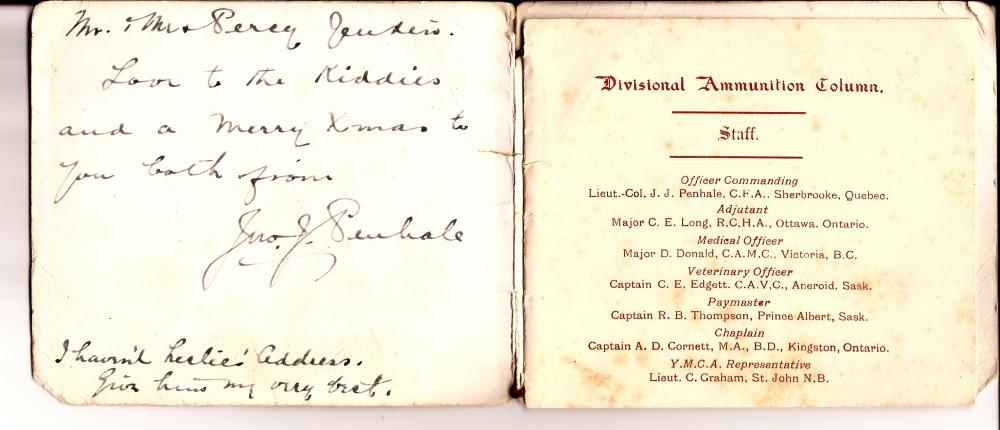 Mr. & Mrs Percy Jenkins.
Love to the Kiddies
and a Merry Xmas to
you both from
Jno. J. Penhale
I havn't Leslie's Address.
Give him my very best.
Divisional Ammunition Column.
Staff.
Officer Commanding
Lieut.-Col. J. J. Penhale, C.F.A., Sherbrooke, Quebec.
Adjutant
Major C. E. Long, R.C.H.A., Ottawa. Ontario.
Medical Officer
Major D. Donald, C.A.M.C., Victoria, B.C.
Veterinary Officer
Captain C. E. Edgett. C.A.V.C., Aneroid. Sask.
Paymaster
Captain R. B. Thompson, Prince Albert, Sask.
Chaplain
Captain A. D. Cornett, M.A., B.D., Kingston, Ontario.
Y.M.C.A. Representative
Lieut. C. Graham, St. John N.B.